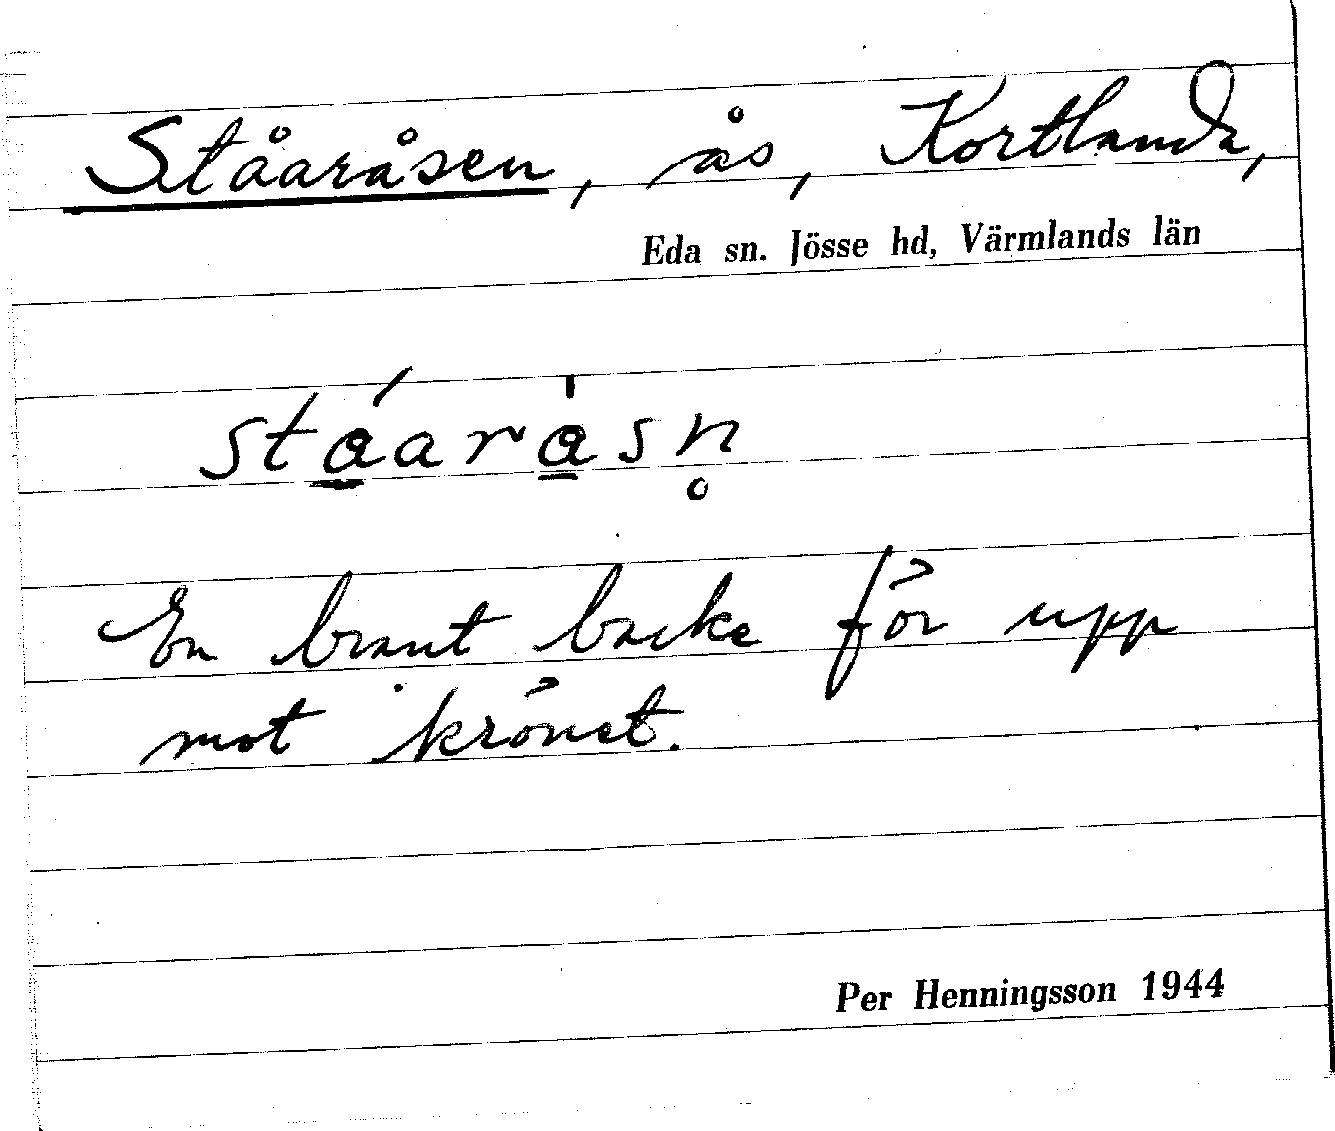 Ståaråsen, ås, Kortlanda,
Eda sn. Jösse hd, Värmlands län
stá̲ara̲̍sn̥
En brant backe för upp
mot krönet.
Per Henningsson 1944